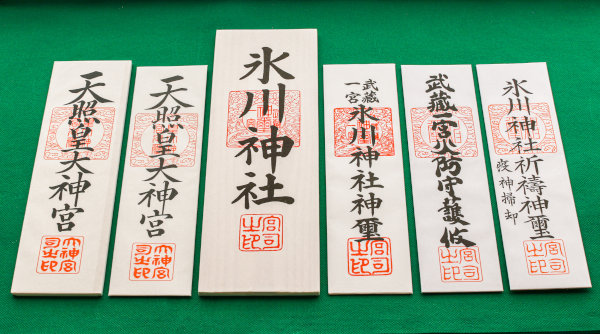 天照皇大神宮
大神宮
司之印
天照皇大神宮
大神宮
司之印
氷川神社
宮司
之印
武蔵
一宮
氷川神社神璽
宮司
之印
武蔵一宮火防守護攸
宮司
之印
氷川神社祈禱神璽
疫神掃却
宮司
之印